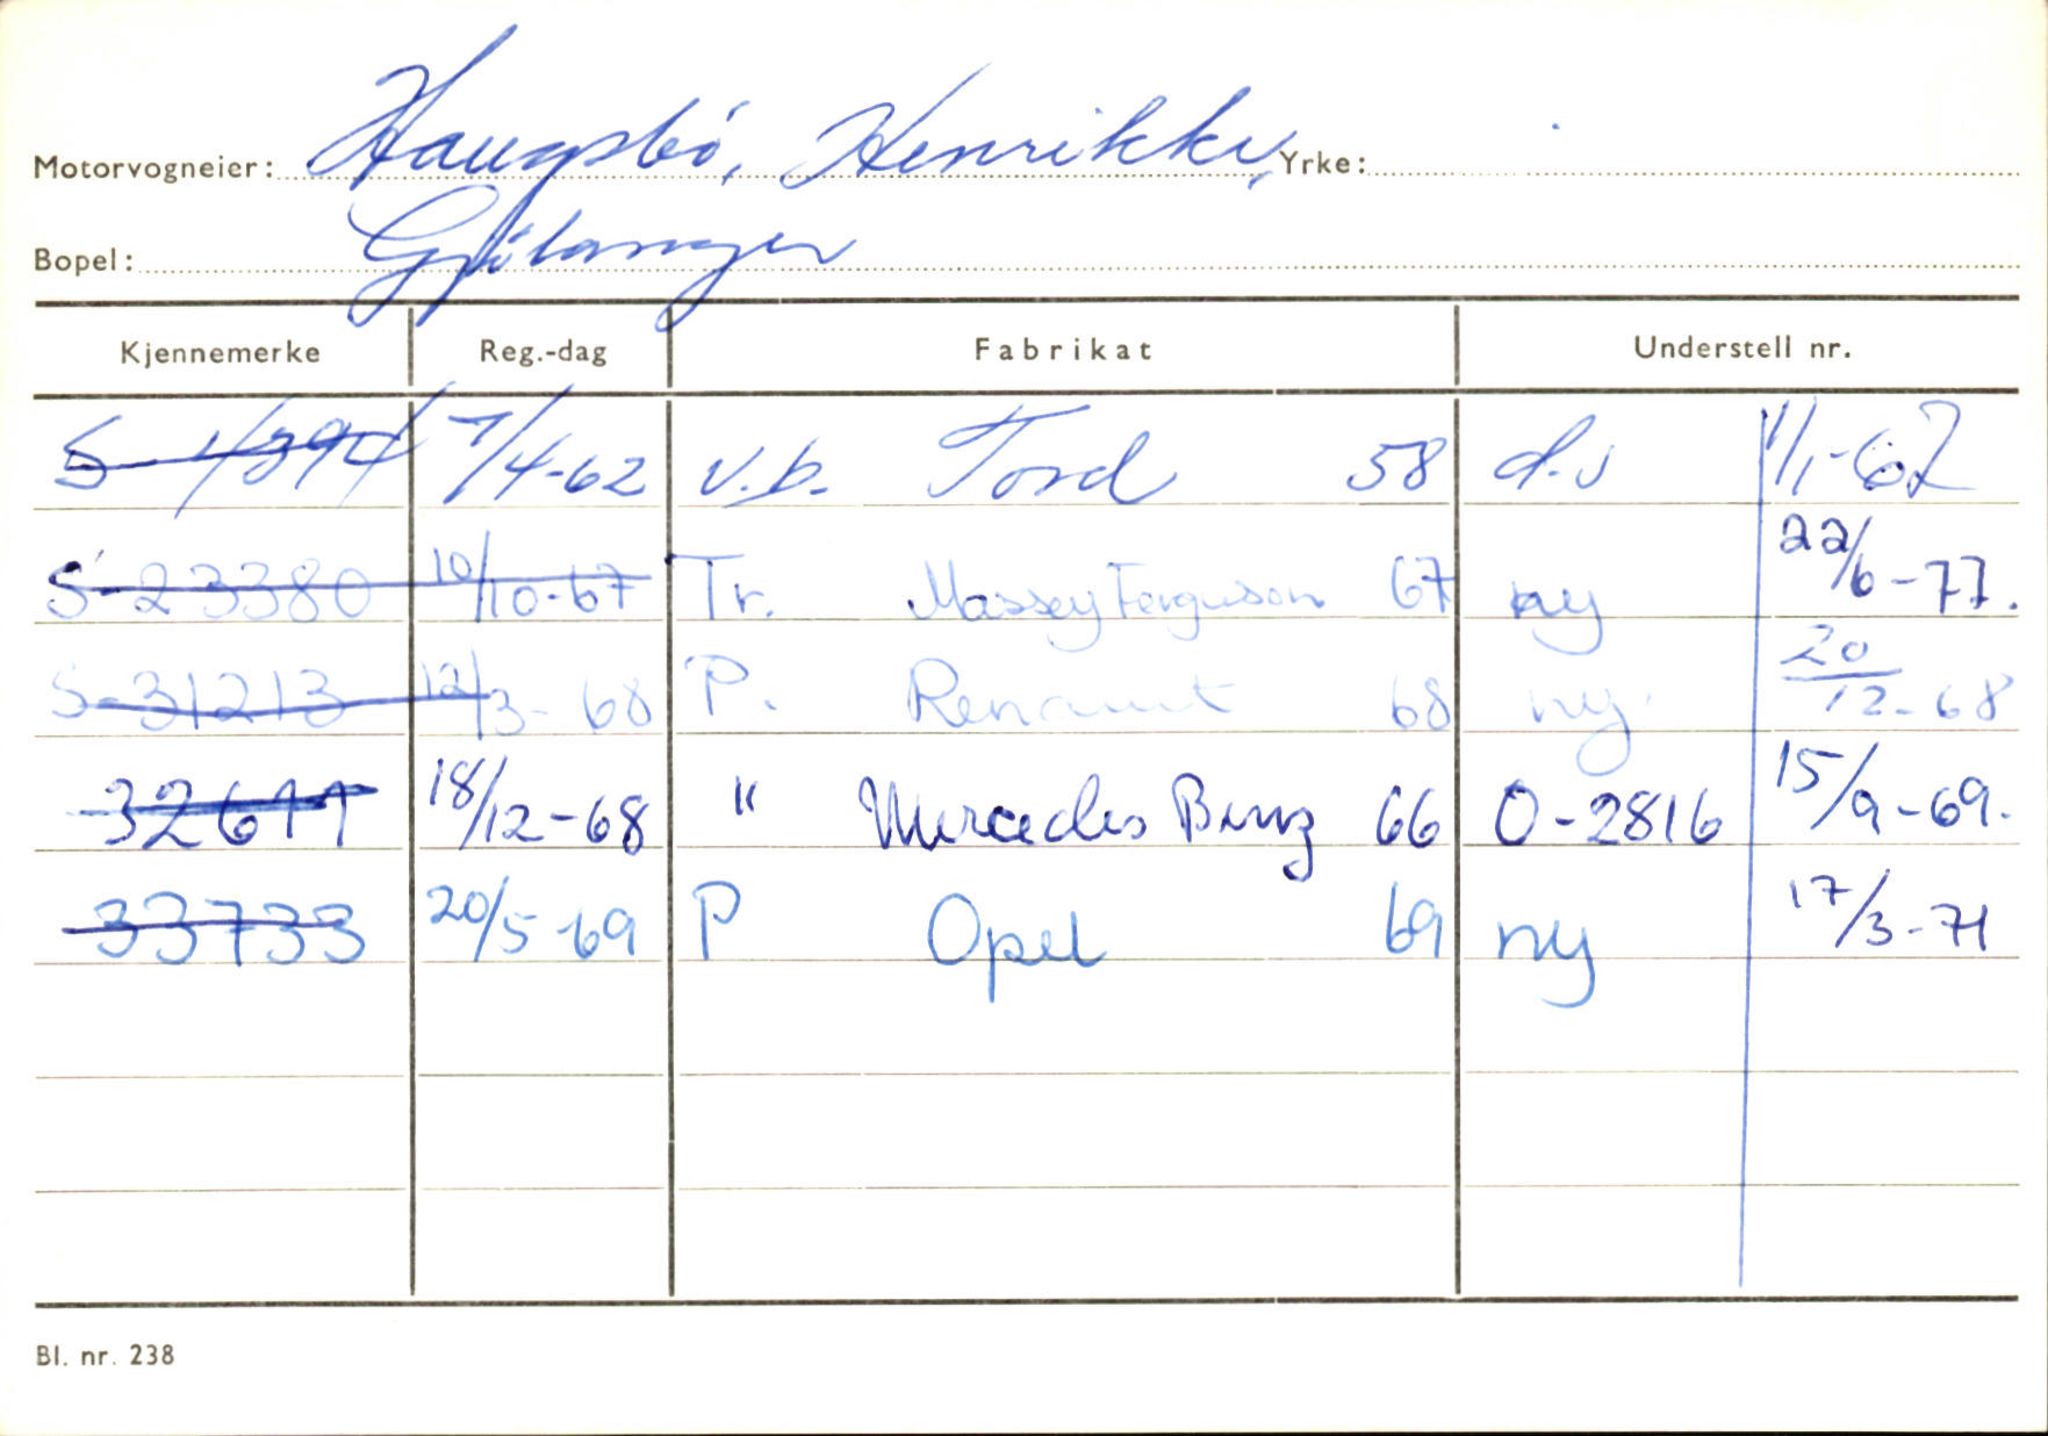 Motorvogneier: Haugsbö, Henrikke, Yrke:
Bopel: Gjölanger
Kjennemerke Reg.-dag Fabrikat Understell nr.
S-1894 7/4-62 v.b. Ford 58 d.s 1/1-67
S-23380 10/10-67 Tr. Massey Ferguson 67 ny 22/6-77.
S-31213 12/3-68 P. Renault 68 ny. 20/12-68
32611 18/12-68 " Mercedes Benz 66 O-2816 15/9-69.
33733 20/5-69 P Opel 69 ny 17/3-71
Bl. nr. 238